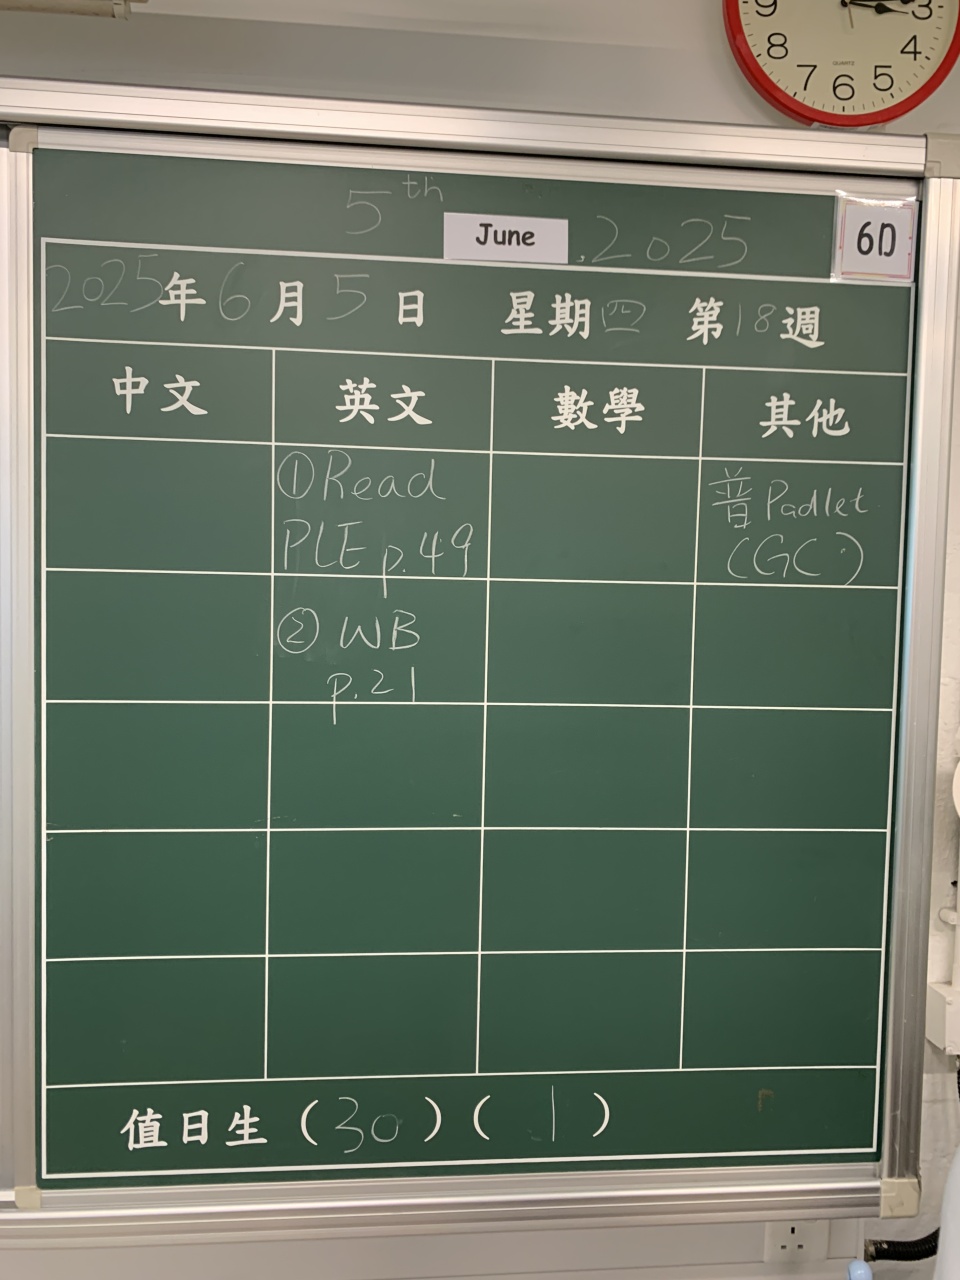 9 3
8 4
QUARTZ
7 6 5
5th June, 2025 6D
2025年6月5日 星期四 第18週
中文 英文 數學 其他
①Read
PLE p.49
普 Padlet
(GC)
② WB
p.21
值日生(30)(1)